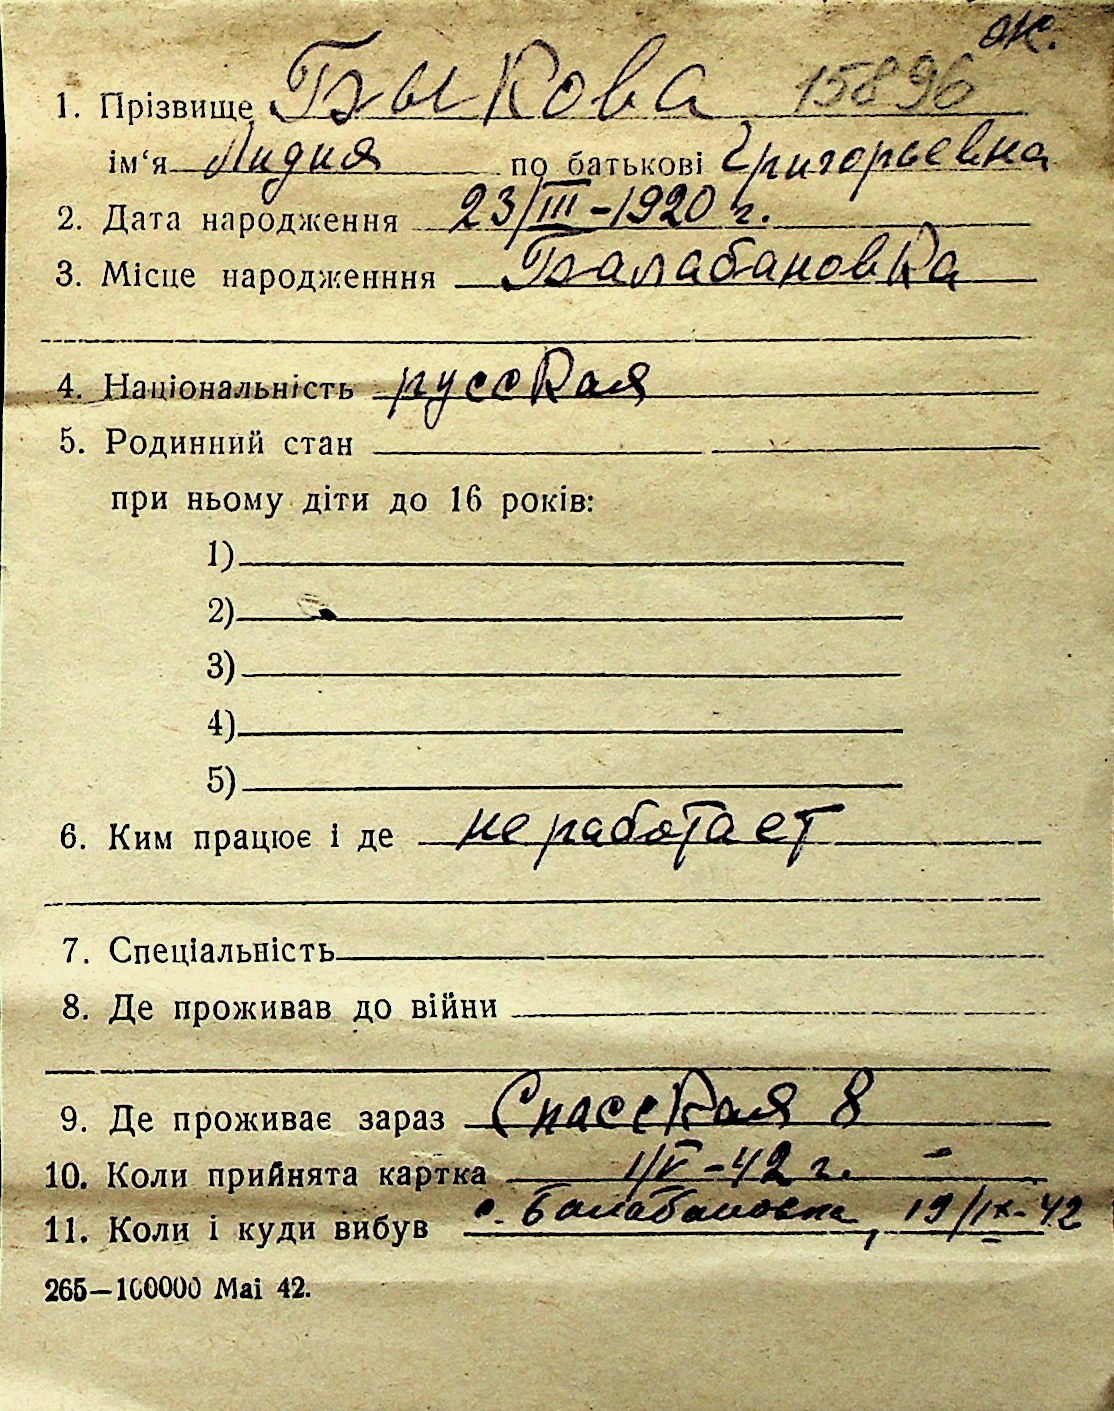 ж.
1. Прізвище Быкова 15896
ім‘я Лидия по батькові Григорьевна
2. Дата народження 23/III-1920 г.
3. Місце народженння Балабановка
4. Національність русская
5. Родинний стан
при ньому діти до 16 років:
1)
2)
3)
4)
5)
6. Ким працює і де не работает
7. Спеціальність
8. Де проживав до війни
9. Де проживає зараз Спасская 8
10. Коли прийнята картка -42 г.
11. Коли і куди вибув с. Балабановка, 19/IX-42
265—100000 Маі 42.